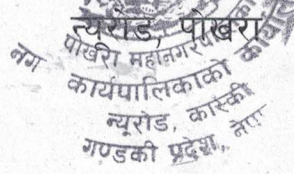 न्यूरोड, पोखरा
पोखरा महानगर
नग कार्यपालिकाको कार्या
न्यूरोड, कास्की
गण्डकी प्रदेश, नेपा